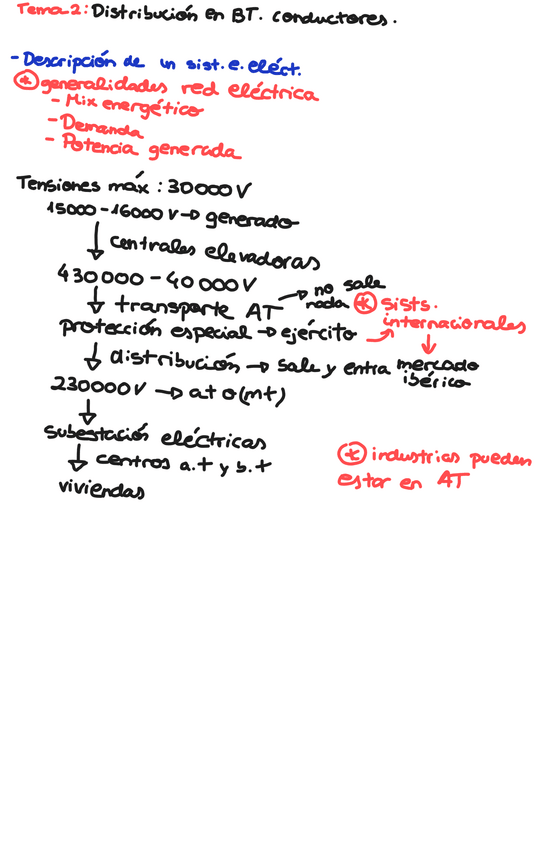 Tema 2: Distribución en BT. conductores.
- Descripción de un sist. e. eléct.
* generalidades red eléctrica
- Mix energético
- Demanda
- Potencia generada
Tensiones máx: 30000 V
15000 - 16000 V → generado
↓ centrales elevadoras
430000 - 40000V
↓ transporte AT → no sale nada * sists. internacionales
protección especial → ejército
↓ distribución → sale y entra mercado ibérico
230000 V → a.t o (mt)
↓
subestación eléctricas
↓ centros a.t y b.t
viviendas
* industrias pueden
estar en AT